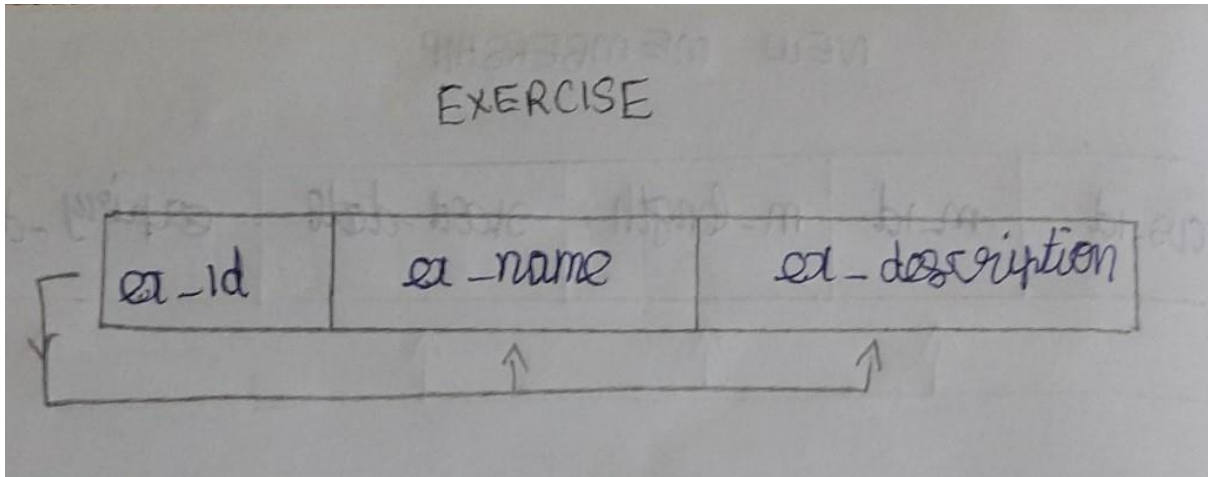 EXERCISE
ex_id ex_name ex_description